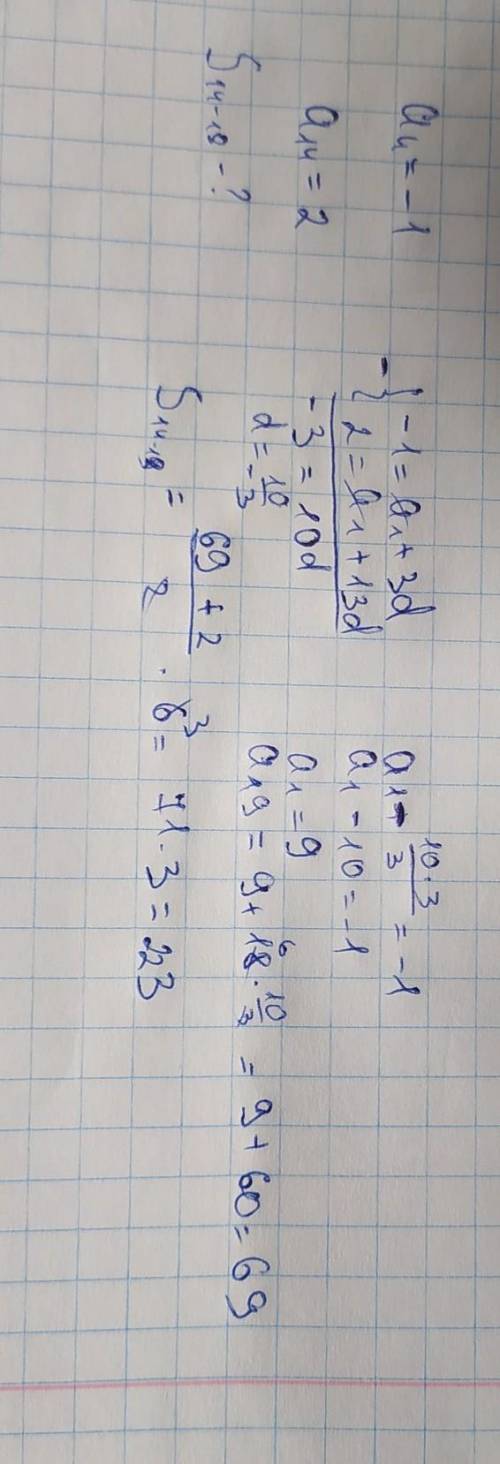 a₄ = -1
a₁₄ = 2
S₁₄₋₁₉ - ?
- { -1 = a₁ + 3d
2 = a₁ + 13d
-3 = 10d
d = 10/-3
a₁ - 10·3/3 = -1
a₁ - 10 = -1
a₁ = 9
a₁₉ = 9 + 18⁶ · 10/3 = 9 + 60 = 69
S₁₄₋₁₉ = 69 + 2/2 · 6³ = 71 · 3 = 223